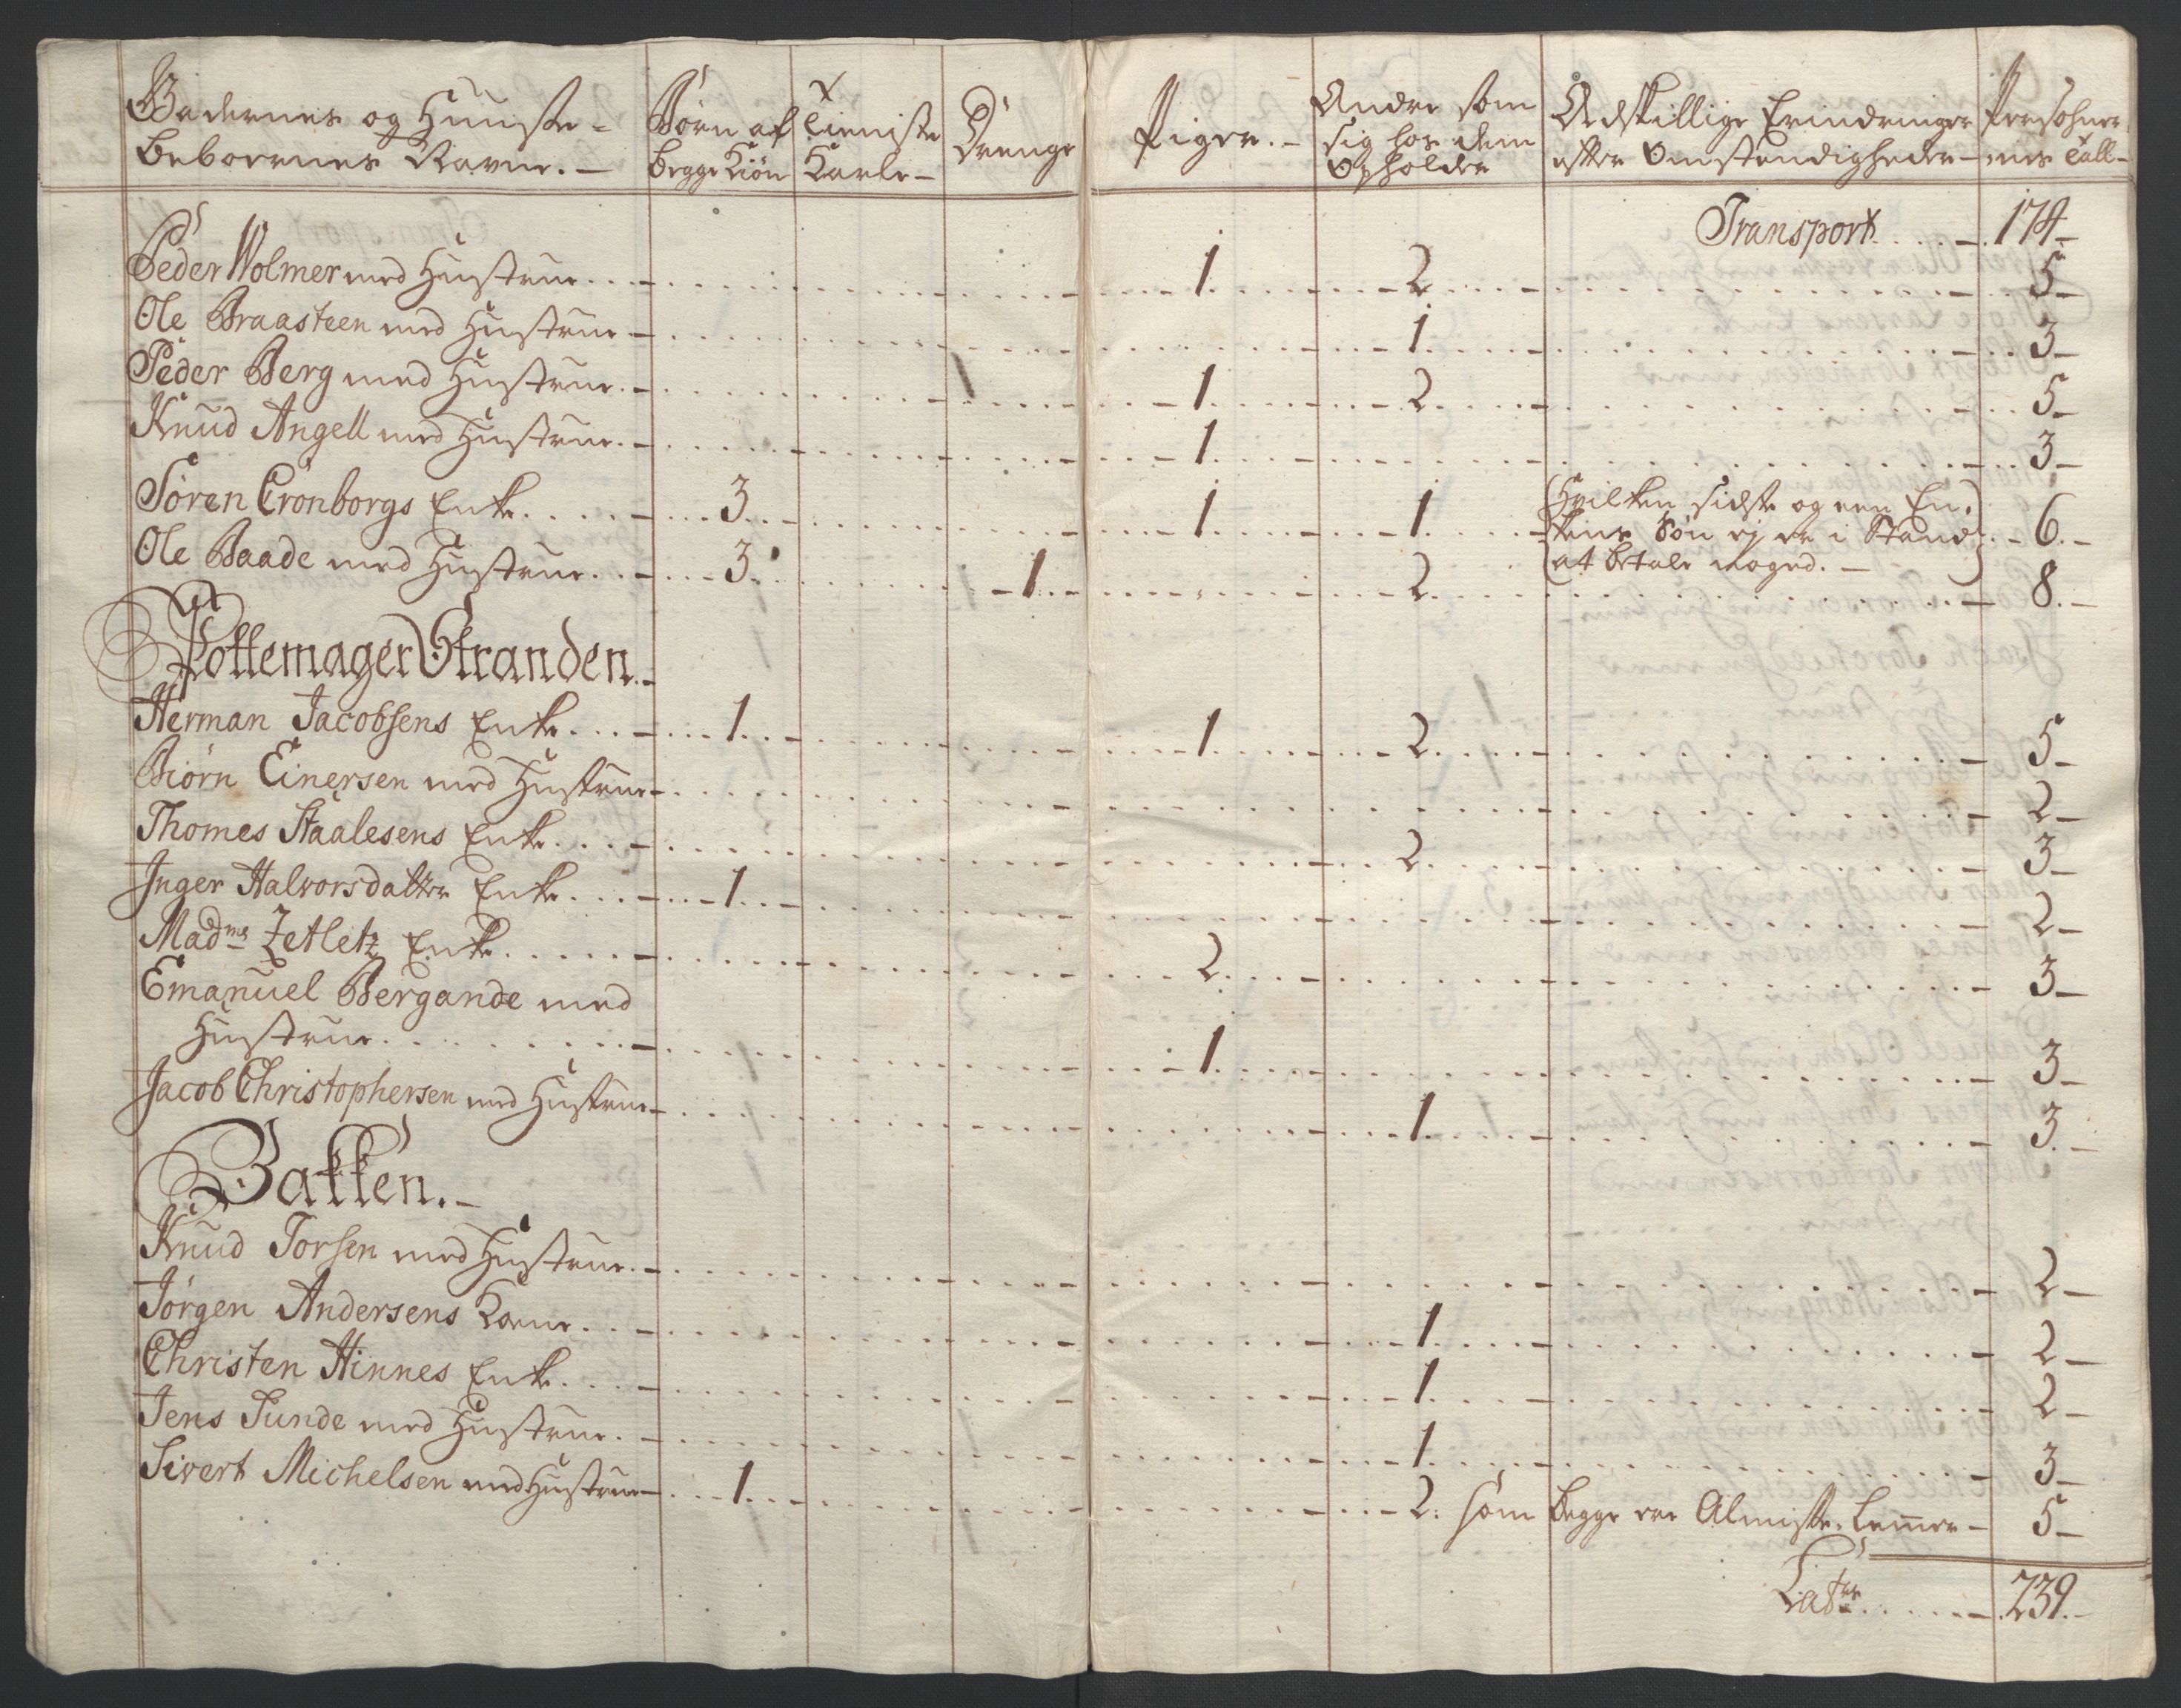 Gadernes og Huuse-
Beboernes Navne. —
Børn af
begge Kiøn
Tieniste
Karle —
Drenge
Piger. —
Andre som
sig hos dem
Opholder
Adskillige Erindringer
efter Omstendigheder —
Persohner
nes Tall —
Transport . . . — 174 —
Peder Wolmer med Hustrue . . . — 1 2 5 —
Ole Braasteen med Hustrue — 1 3 —
Peder Berg med Hustrue . — 1 2 5 —
Knud Angell med Hustrue . — 1 3 —
Søren Cronborgs Enke . . . . — 3 1 1 Hvilken sidste og een En- 6. —
kens Søn ej er i Stand
at betale noged. —
Ole Baade med Hustrue . . — 3 1 2 8. —
Pottemager Stranden. —
Herman Jacobsens Enke . . . — 1 1 2 5 —
Biørn Einersen med Hustrue — 2 —
Thomes Staalesens Enke . . . — 2 3 —
Inger Halvorsdatter Enke . . . — 1 2 —
Madme Zetletz Enke . . . . . — 2 3 —
Emanuel Bergande med
Hustrue . . . . . . . — 1 3 —
Jacob Christophersen med Hustrue — 1 3. —
Bakken. —
Knud Torsen med Hustrue . — 2 —
Jørgen Andersens Kone . . — 1 2 —
Christen Hinnes Enke . . . — 1 2 —
Jens Tunde med Hustrue . — 1 3 —
Sivert Michelsen med Hustrue — 1 2. som begge ere Almisse-Lemmer — 5 —
Latus . . . . . — 239. —